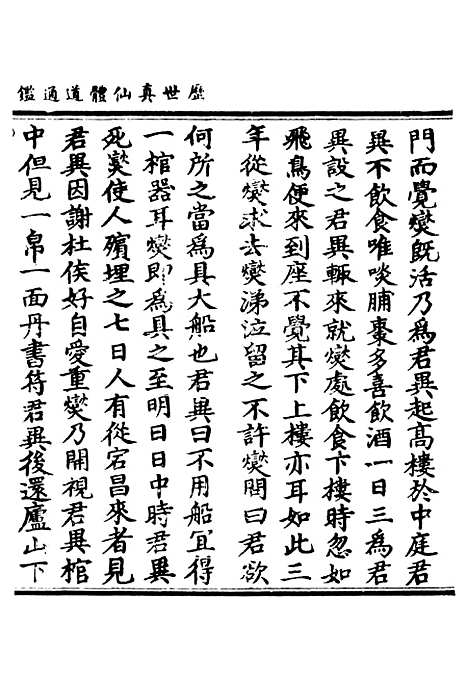 歷世真仙體道通鑑
門而覺燮既活乃為君異起高樓於中庭君
異不飲食唯啖脯棗多喜飲酒一日三為君
異設之君異輒來就燮處飲食下樓時忽如
飛鳥便來到座不覺其下上樓亦耳如此三
年從燮求去燮涕泣留之不許燮問曰君欲
何所之當為具大船也君異曰不用船宜得
一棺器耳燮即為具之至明日日中時君異
死燮使人殯埋之七日人有從宕昌來者見
君異因謝杜侯好自愛重燮乃開視君異棺
中但見一帛一面丹書符君異後還廬山下